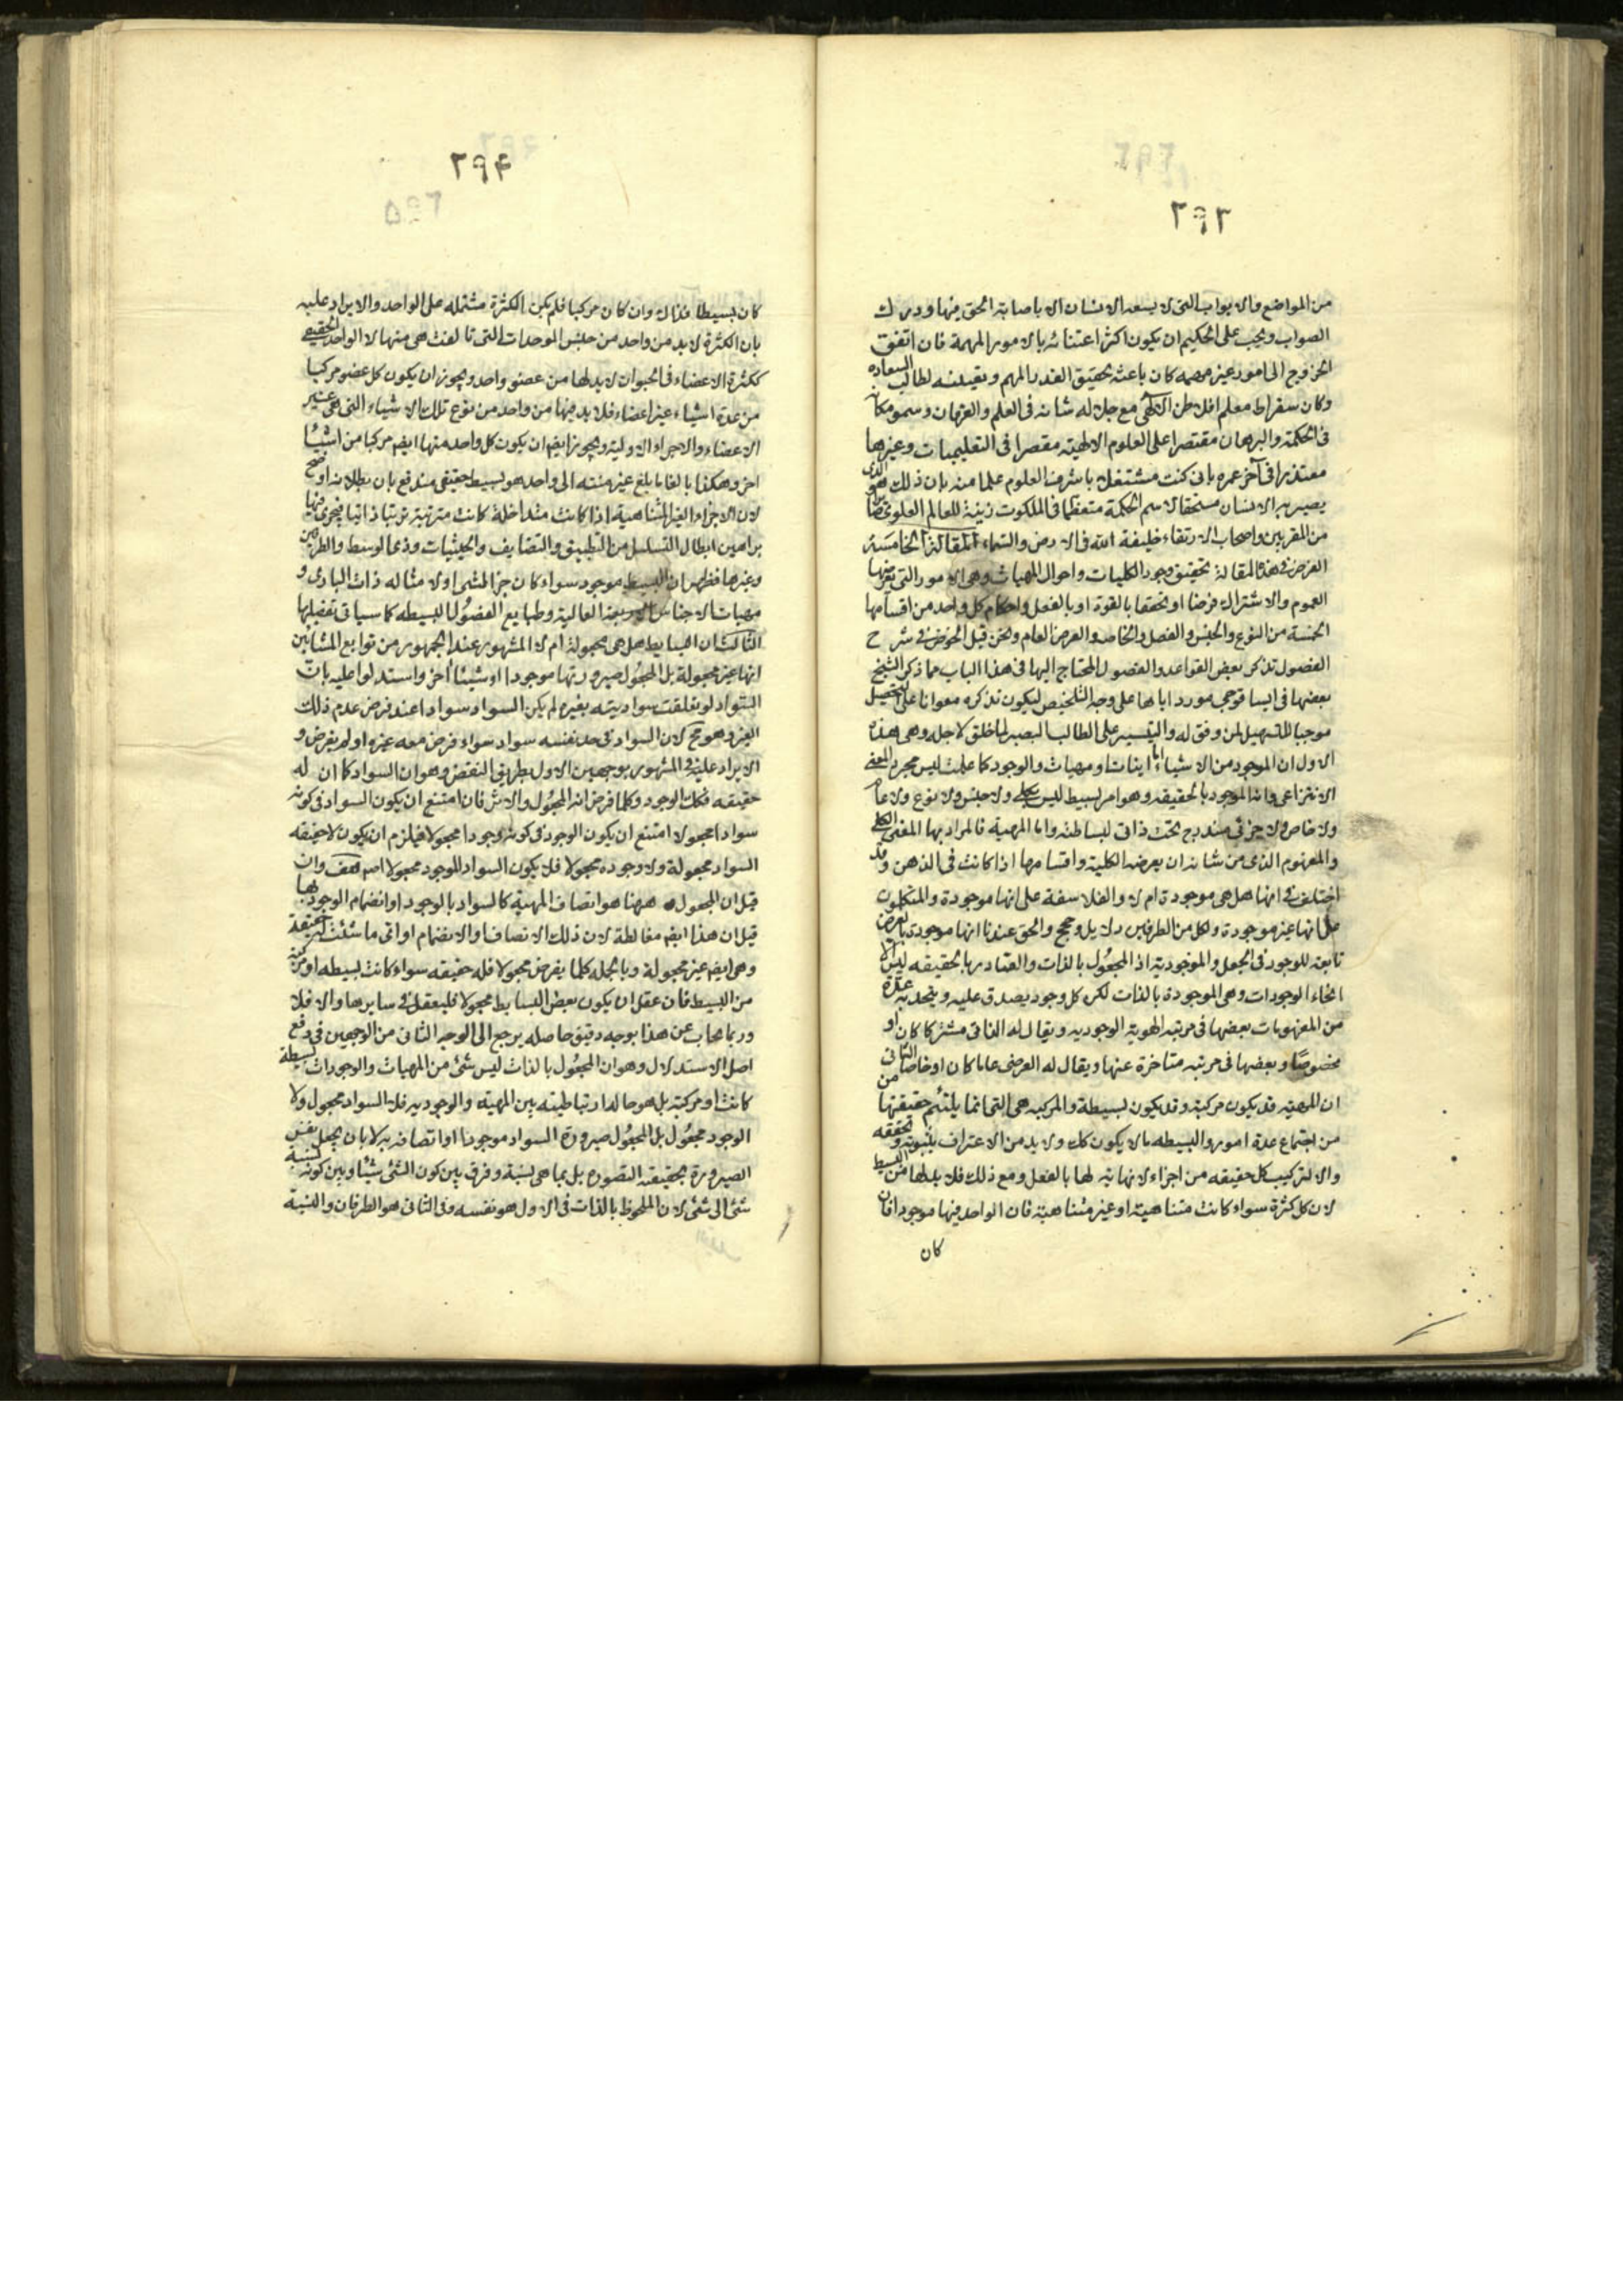 ٢٩٣
من المواضع والابواب التى لا يسعد الانسان الا باصابته الحق فيها ودرك
الصواب ويجب على الحكيم ان يكون اكثر اعتنائه بالامور المهمة فان اتفق
الخروج الى امور غير مهمه كان باعثه تحقيق القدر المهم وبقيسه لطالب السعاده
وكان سقراط معلم افلاطن الالهى مع جلاله شانه فى العلم والعرفان وسمو مكانه
فى الحكمة والبرهان مقتصرا على العلوم الالهية مقصرا فى التعليميات وغيرها
معتذرا فى آخر عمره بانى كنت مشتغلا باشرف العلوم علما منه بان ذلك هو الذى
يصير به الانسان مستحقا لاسم الحكمة متعظما فى الملكوت زينة للعالم العلوى
من المقربين واصحاب الارتقاء خليفة الله فى الارض والسماء المقالة الخامسة
الغرض فى هذه المقالة تحقيق وجود الكليات واحوال المهيات وهى الامور التى يعرضها
العموم والاشتراك فرضا او تحققا بالقوة او بالفعل واحكام كل واحد من اقسامها
الخمسة من النوع والجنس والفصل والخاصه والعرض العام ونحن قبل الخوض فى شرح
الفصول نذكر بعض القواعد والفصول المحتاج اليها فى هذا الباب مما ذكر الشيخ
بعضها فى ايساغوجى موردا اياها على وجه التلخيص ليكون تذكره معوانا على التحصيل
موجبا للتسهيل لمن وفق له والتيسير على الطالب البصير لما خلق لاجله وهى هذه
الاول ان الموجود من الاشياء اما اينات او مهيات والوجود كما علمت ليس مجرد المعنى
الانتزاعى وانه الموجود بالحقيقه وهو امر بسيط ليس بكلى ولا جنس ولا نوع ولا عام
ولا خاص ولا جزئى مندرج تحت ذاتى لبساطته واما المهية فالمراد بها المعنى الكلى
والمفهوم الذى من شانه ان يعرضه الكلية واقسامها اذا كانت فى الذهن وقد
اختلف فى انها هل هى موجودة ام لا والفلاسفة على انها موجودة والمتكلمون
على انها غير موجودة ولكل من الطرفين دلايل وحجج والحق عندنا انها موجودة بالعرض
تابعه للوجود فى الجعل والموجودية اذ المجعول بالذات والصادر بالحقيقه ليس الا
انحاء الوجودات وهى الموجودة بالذات لكن كل وجود يصدق عليه ويتحد به عدة
من المفهومات بعضها فى مرتبه الهوية الوجوديه ويقال له الذاتى مشتركا كان او
مخصوصا وبعضها فى مرتبه متاخرة عنها ويقال له العرضى عاما كان او خاصا الثانى
ان المهيه قد يكون مركبة وقد يكون بسيطة والمركبه هى التى انما يلتئم حقيقتها من
من اجتماع عدة امور والبسيطه ما لا يكون كك ولا بد من الاعتراف بثبوته وتحققه
والا لتركب كل حقيقه من اجزاء لا نهاية لها بالفعل ومع ذلك فلا بد لها من البسيط
لان كل كثرة سواء كانت متناهية او غير متناهية فان الواحد فيها موجود فان
كان
٢٩٤
كان بسيطا فذاك وان كان مركبا فلم يكن الكثرة مشتمله على الواحد والايراد عليه
بان الكثرة لا بد من واحد من جنس الموحدات التى تالفت هى منها لا الواحد الحقيقى
ككثرة الاعضاء فى الحيوان لا بد لها من عضو واحد ويجوز ان يكون كل عضو مركبا
من عدة اشياء غير اعضاء فلا بد فيها من واحد من نوع تلك الاشياء التى هى غير
الاعضاء والاجزاء الاولية ويجوز ايضم ان يكون كل واحد منها ايضم مركبا من اشياء
اخر وهكذا بالغا ما بلغ غير منته الى واحد هو بسيط حقيقى مندفع بان بطلانه اوضح
لان الاجزاء الغير المتناهية اذا كانت متداخلة كانت مترتبة ترتبا ذاتيا فيجرى فيها
براهين ابطال التسلسل من التطبيق والتضايف والحيثيات وذى الوسط والطرفين
وغيرها فظهر ان البسيط موجود سواء كان جزء لشئ او لا مثاله ذات البارى و
مهيات الاجناس العالية وطبايع الفصول البسيطه كما سياتى تفصيلها
الثالث ان البسايط هل هى مجعولة ام لا المشهور عند الجمهور من توابع المشائين
انها غير مجعولة بل المجعول صيرورتها موجودا او شيئا اخر واستدلوا عليه بان
السواد لو تعلقت سواديته بغيره لم يكن السواد سوادا عند فرض عدم ذلك
الغير وهو مح لان السواد فى حد نفسه سواد سواء فرض معه غيره او لم يفرض و
الايراد عليه فى المشهور بوجهين الاول بطريق النقض وهو ان السواد كما ان له
حقيقه فكك الوجود وكلما فرض انه المجعول والاثر فان امتنع ان يكون السواد فى كونه
سوادا مجعولا امتنع ان يكون الوجود فى كونه وجودا مجعولا فيلزم ان يكون لا حقيقه
السواد مجعولة ولا وجوده مجعولا فلا يكون السواد الموجود مجعولا اصم هف وان
قيل ان المجعول ههنا هو اتصاف المهية كالسواد بالوجود او انضمام الوجود بها
قيل ان هذا ايضم مغالطة لان ذلك الاتصاف والانضمام او اتى ما شئت له حقيقة
وهى ايضم غير مجعولة وبالجمله كلما يفرض مجعولا فله حقيقه سواء كانت بسيطه او مركبة
من البسيط فان عقل ان يكون بعض البسايط مجعولا فليعقل فى سايرها والا فلا
وربما يجاب عن هذا بوجه دقيق حاصله يرجع الى الوجه الثانى من الوجهين فى دفع
اصل الاستدلال وهو ان المجعول بالذات ليس شئ من المهيات والوجودات بسيطة
كانت او مركبة بل هو حالة ارتباطيه بين المهيه والوجود به فلا السواد مجعول ولا
الوجود مجعول بل المجعول صيرورة السواد موجودا او اتصافه به لا بان يجعل نفس
الصيرورة بحقيقته التصوره بل بما هى نسبة وفرق بين كون الشئ شيئا وبين كونه نسبة
شئ الى شئ لان الملحوظ بالذات فى الاول هو نفسه وفى الثانى هو الطرفان والنسبة